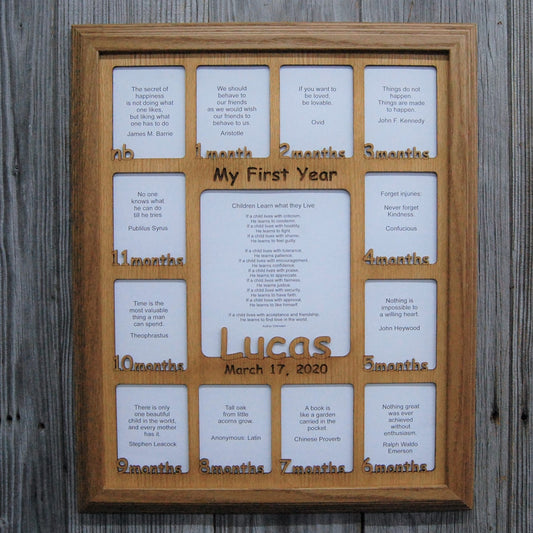 The secret of
happiness
is not doing what
one likes,
but liking what
one has to do
James M. Barrie
nb
We should
behave to
our friends
as we would wish
our friends to
behave to us
Aristotle
1month
If you want to
be loved,
be lovable.
Ovid
2months
Things do not
happen.
Things are made
to happen.
John F. Kennedy
3months
My First Year
No one
knows what
he can do
till he tries
Publilius Syrus
11months
Children Learn what they Live
If a child lives with criticism,
He learns to condemn
If a child lives with hostility,
He learns to fight
If a child lives with shame,
He learns to feel guilty
If a child lives with tolerance,
He learns patience.
If a child lives with encouragement,
He learns confidence.
If a child lives with praise,
He learns to appreciate
If a child lives with fairness,
He learns justice.
If a child lives with security,
He learns to have faith
If a child lives with approval,
He learns to like himself
If a child lives with acceptance and friendship,
He learns to find love in the world.
Author Unknown
Lucas
March 17, 2020
Forget injuries:
Never forget
Kindness.
Confucious
4months
Time is the
most valuable
thing a man
can spend.
Theophrastus
10months
Nothing is
impossible to
a willing heart.
John Heywood
5months
There is only
one beautiful
child in the world,
and every mother
has it.
Stephen Leacock
9months
Tall oak
from little
acorns grow.
Anonymous: Latin
8months
A book is
like a garden
carried in the
pocket
Chinese Proverb
7months
Nothing great
was ever
achieved
without
enthusiasm.
Ralph Waldo
Emerson
6months